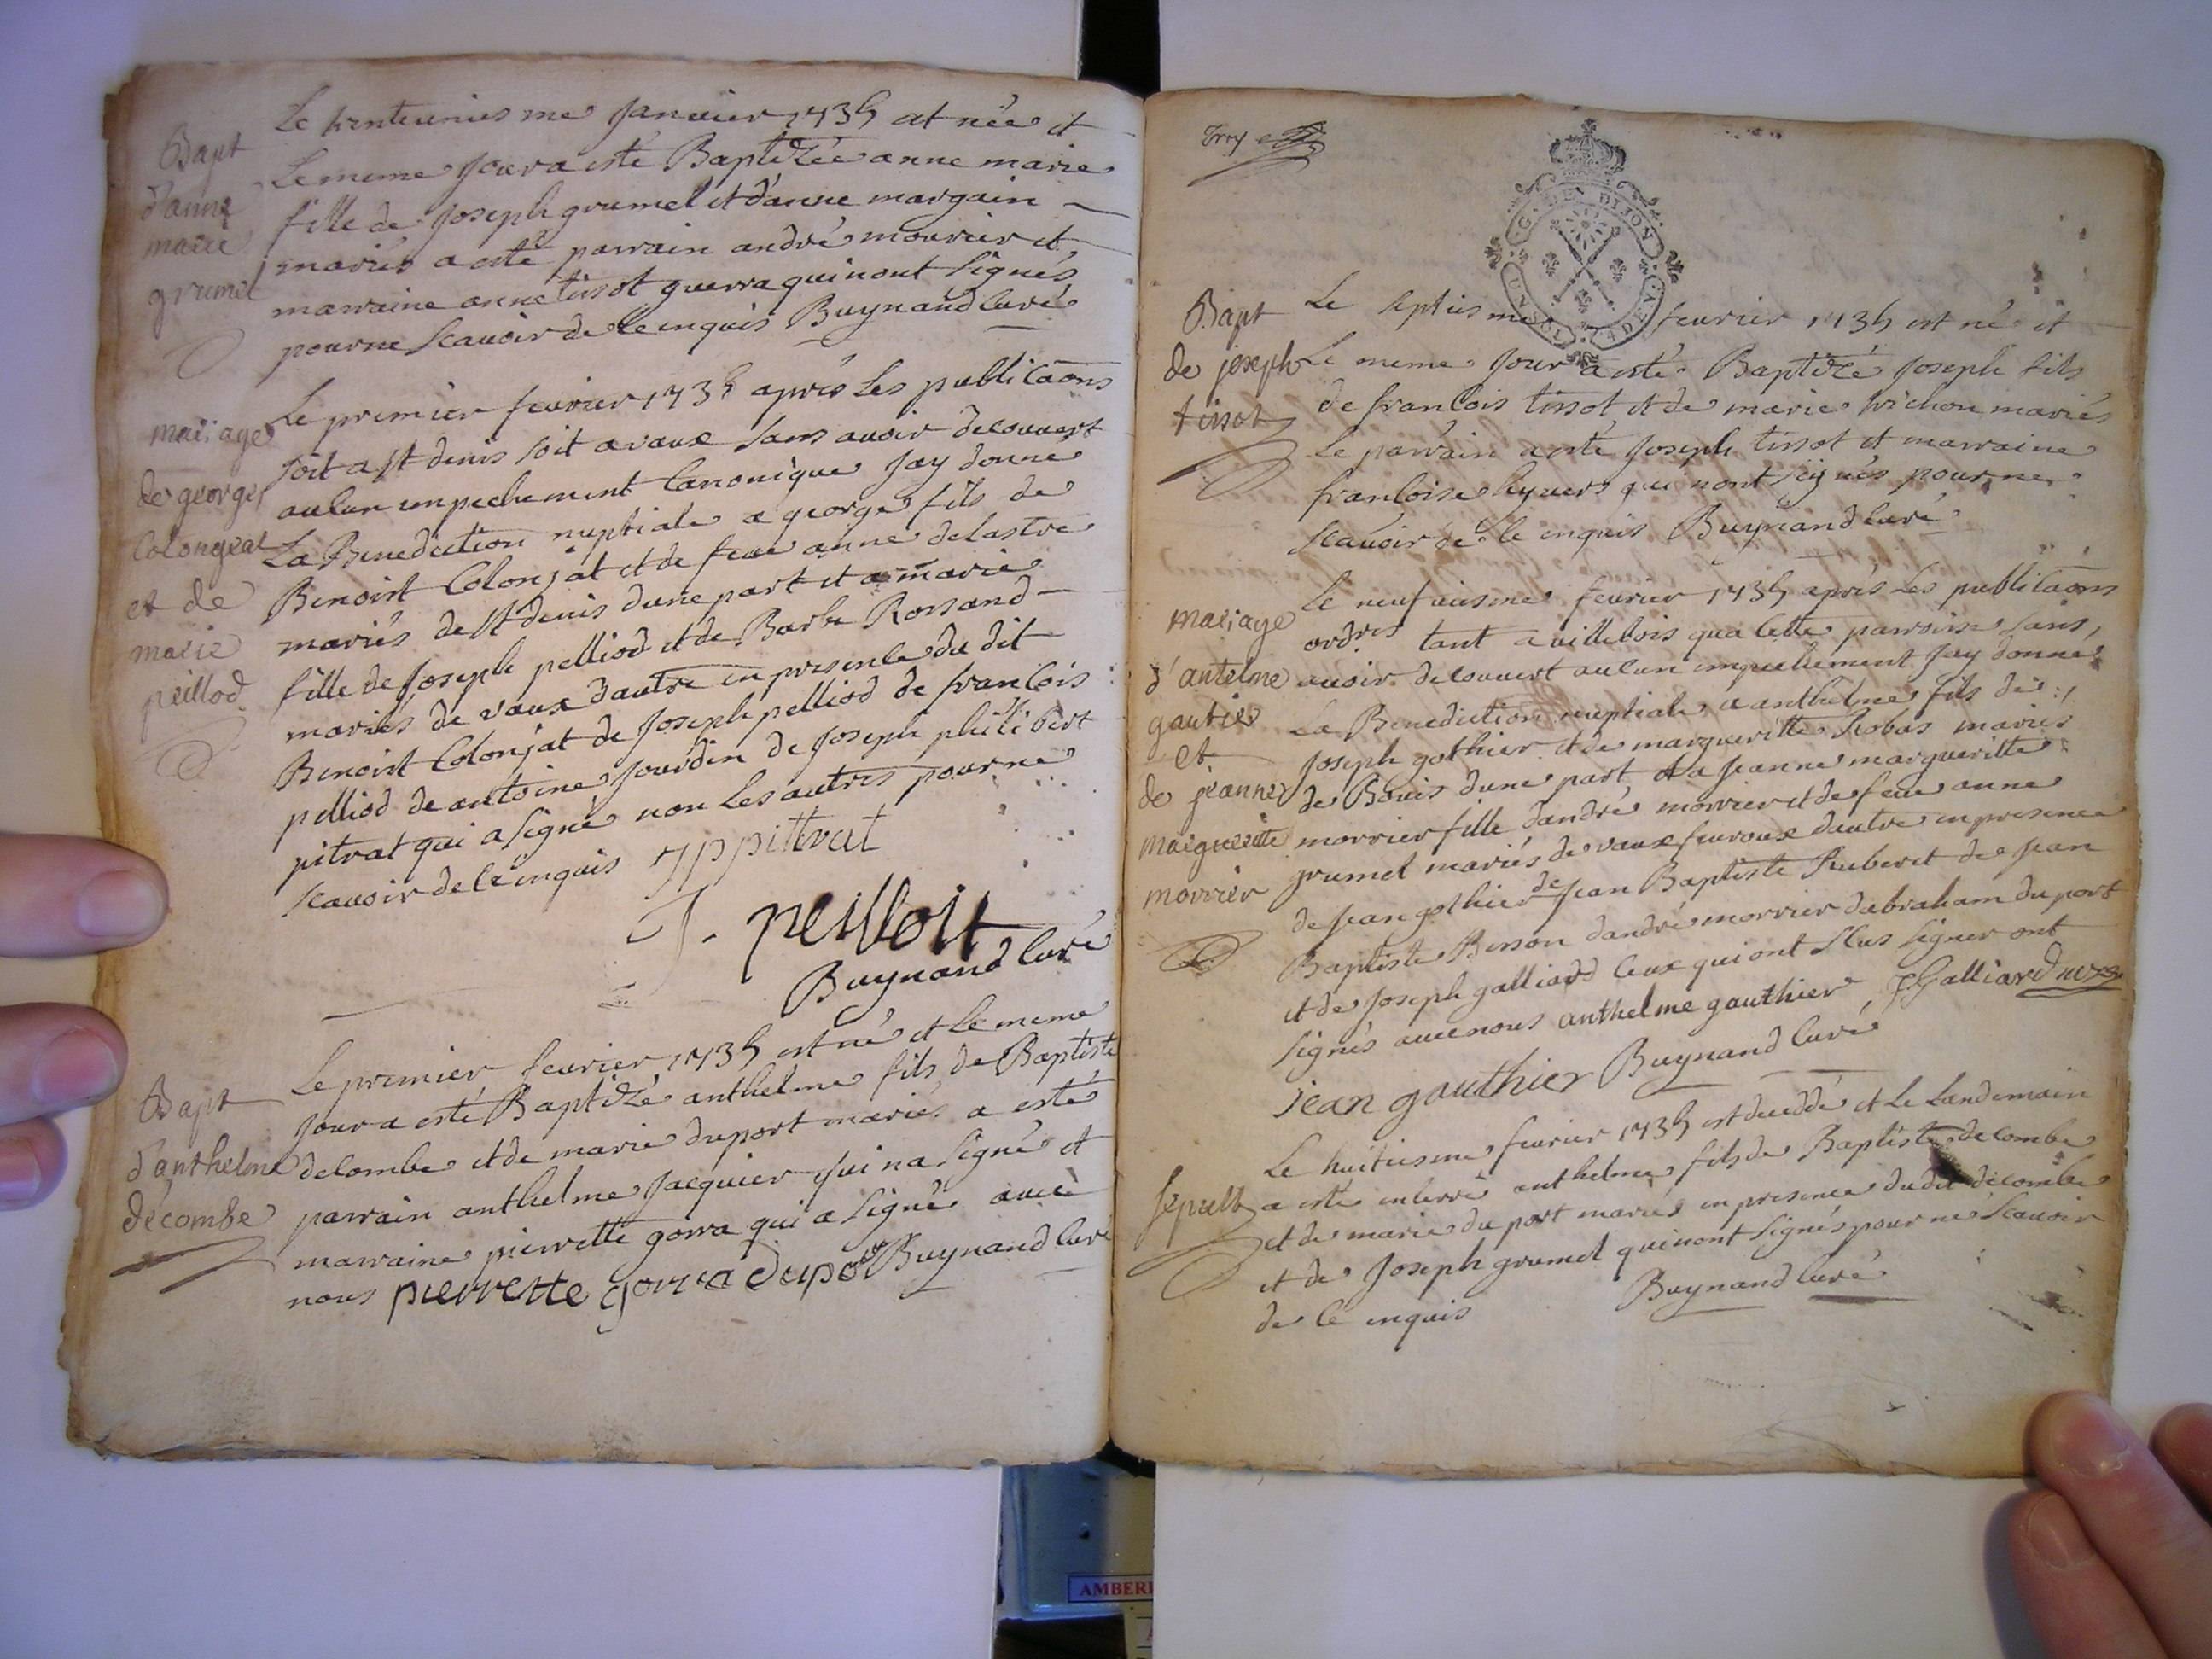 Bapt
d'anne
marie
grumel
Le trenteuniesme Janvier 1735 est née et
Le meme Jour a esté Baptizée anne marie
fille de Joseph grumel et d'anne margain
mariés a esté parrain andré mourier et
marraine anne tissot guerra qui nont signés
pour ne scavoir de ce enquis Buynand curé
mariage
de george
Colongeat
et de
marie
peillod
Le premier fevrier 1735 après Les publicaons
soit a st denis soit a vaux sans avoir decouvert
aucun empechement Canonique Jay donné
La Benediction nuptiale a george fils de
Benoist Colonjat et de feue anne delastre
mariés de st denis dune part et a marie
fille de Joseph pelliod et de Barbe Rossand
mariés de vaux dautre en presence du dit
Benoist Colonjat de Joseph pelliod de francois
pelliod de antoine Jourdin de Joseph philibert
pitrat qui a signé non Les autres pour ne
scavoir de ce enquis Jppitrat
J. peilloit
Buynand Curé
Bapt
d'anthelme
décombe
Le premier fevrier 1735 est né et Le meme
Jour a esté Baptizé anthelme fils de Baptiste
decombe et de marie duport mariés a esté
parrain anthelme Jacquier qui na signé et
marraine pierrette gorra qui a signé avec
nous pierrette gorra Dupor Buynand curé
G. DE DIJON
Bapt
de joseph
tissot
Le septiesme fevrier 1735 est né et
Le meme Jour a esté Baptizé Joseph fils
de francois tissot et de marie trichon mariés
Le parrain a esté Joseph tissot et marraine
francoise leyvers qui nont signés pour ne
scavoir de ce enquis Buynand curé
mariage
d'antelme
gautier
et
de jeanne
marguerite
morrier
Le neufviesme fevrier 1735 après Les publicaons
ordres tant a villebois qua Cette parroisse sans
avoir decouvert aucun empechement Jay donné
La Benediction nuptiale a anthelme fils de
Joseph gothier et de margueritte Robas mariés
de Bouis dune part et a Jeanne margueritte
morrier fille dandré morrier et de feue anne
grumel mariés de vaux fevroux dautre en presence
de Jean gothier de Jean Baptiste Ruberet de Jean
Baptiste Besson dandré morrier dabraham du port
et de Joseph galliard Ceux qui ont sceus signer ont
signés avec nous anthelme gauthier J. Galliard
jean gauthier Buynand Curé
Sepult
Le huitiesme fevrier 1735 est decedé et Le Landemain
a esté enterré anthelme fils de Baptiste decombe
et de marie du port mariés en presence du dit decombe
et de Joseph grumel qui nont signés pour ne scavoir
de ce enquis Buynand Curé
AMBER